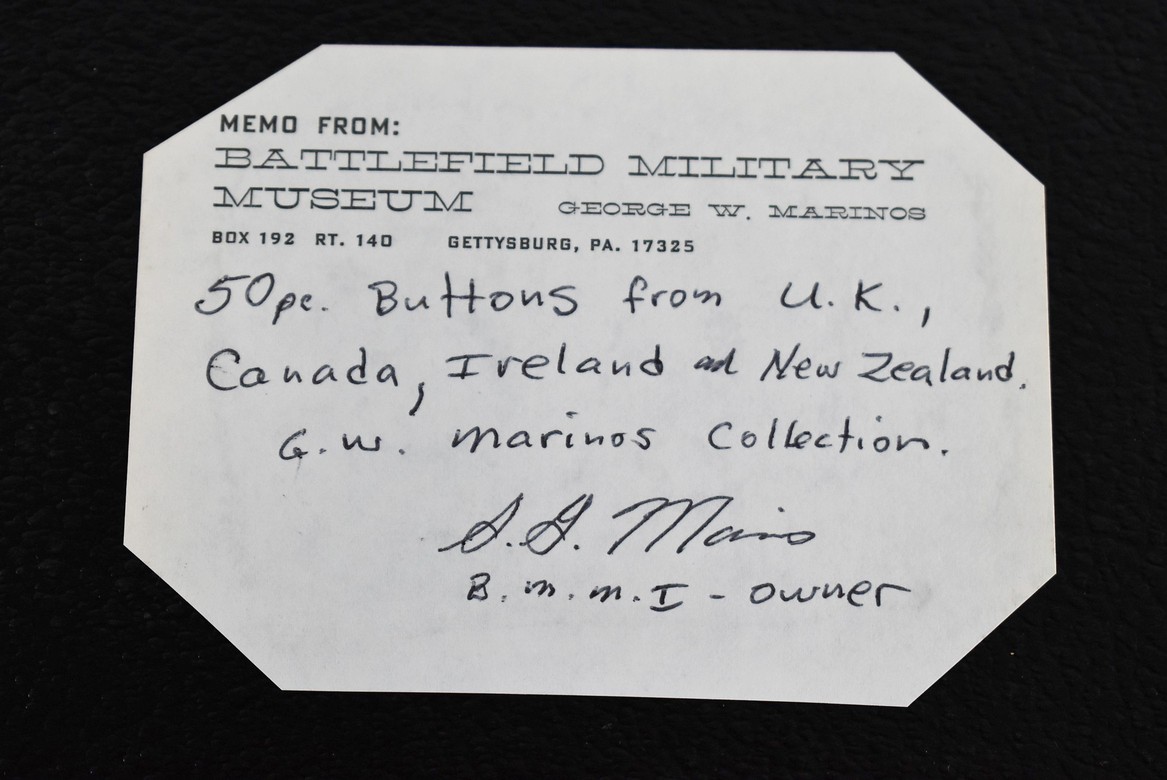 MEMO FROM:
BATTLEFIELD MILITARY
MUSEUM GEORGE W. MARINOS
BOX 192 RT. 140 GETTYSBURG, PA. 17325
50pc. Buttons from U.K.,
Canada, Ireland and New Zealand.
G.W. Marinos Collection.
S.G. Marinos
B.M.M.I - owner